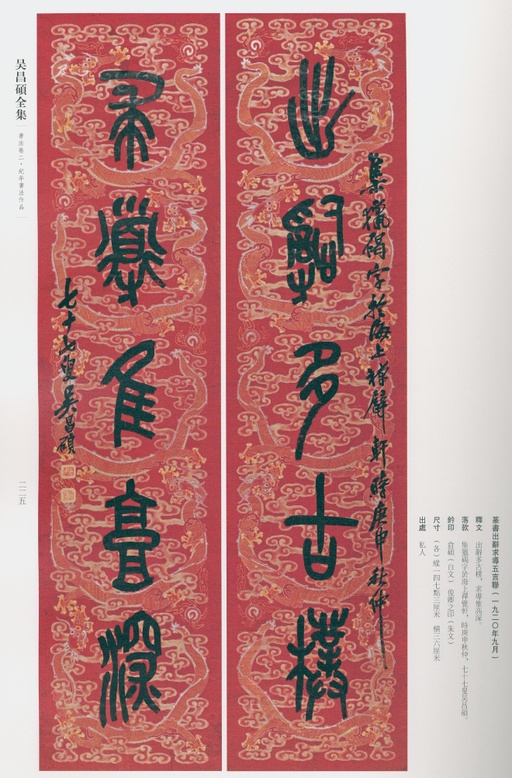 出辭多古樸
集獵碣字於海上禪甓軒時庚申秋仲
求導惟高深
七十七叟吳昌碩
篆書出辭求導五言聯（一九二〇年九月）
釋文　出辭多古樸，求導惟高深。
落款　集獵碣字於海上禪甓軒，時庚申秋仲，七十七叟吳昌碩。
鈐印　倉碩（白文）　俊卿之印（朱文）
尺寸　（各）縱一四七點三厘米　橫三六厘米
出處　私人
吴昌碩全集
書法卷二・紀年書法作品
二二五